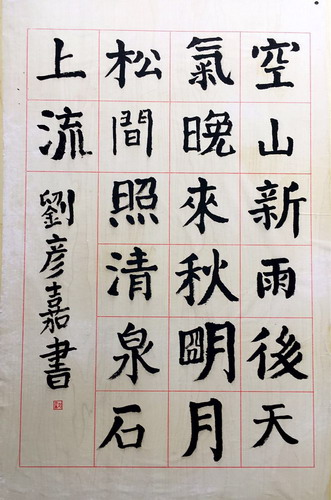 空山新雨後天
氣晚來秋明月
松間照清泉石
上流
劉彥嘉書